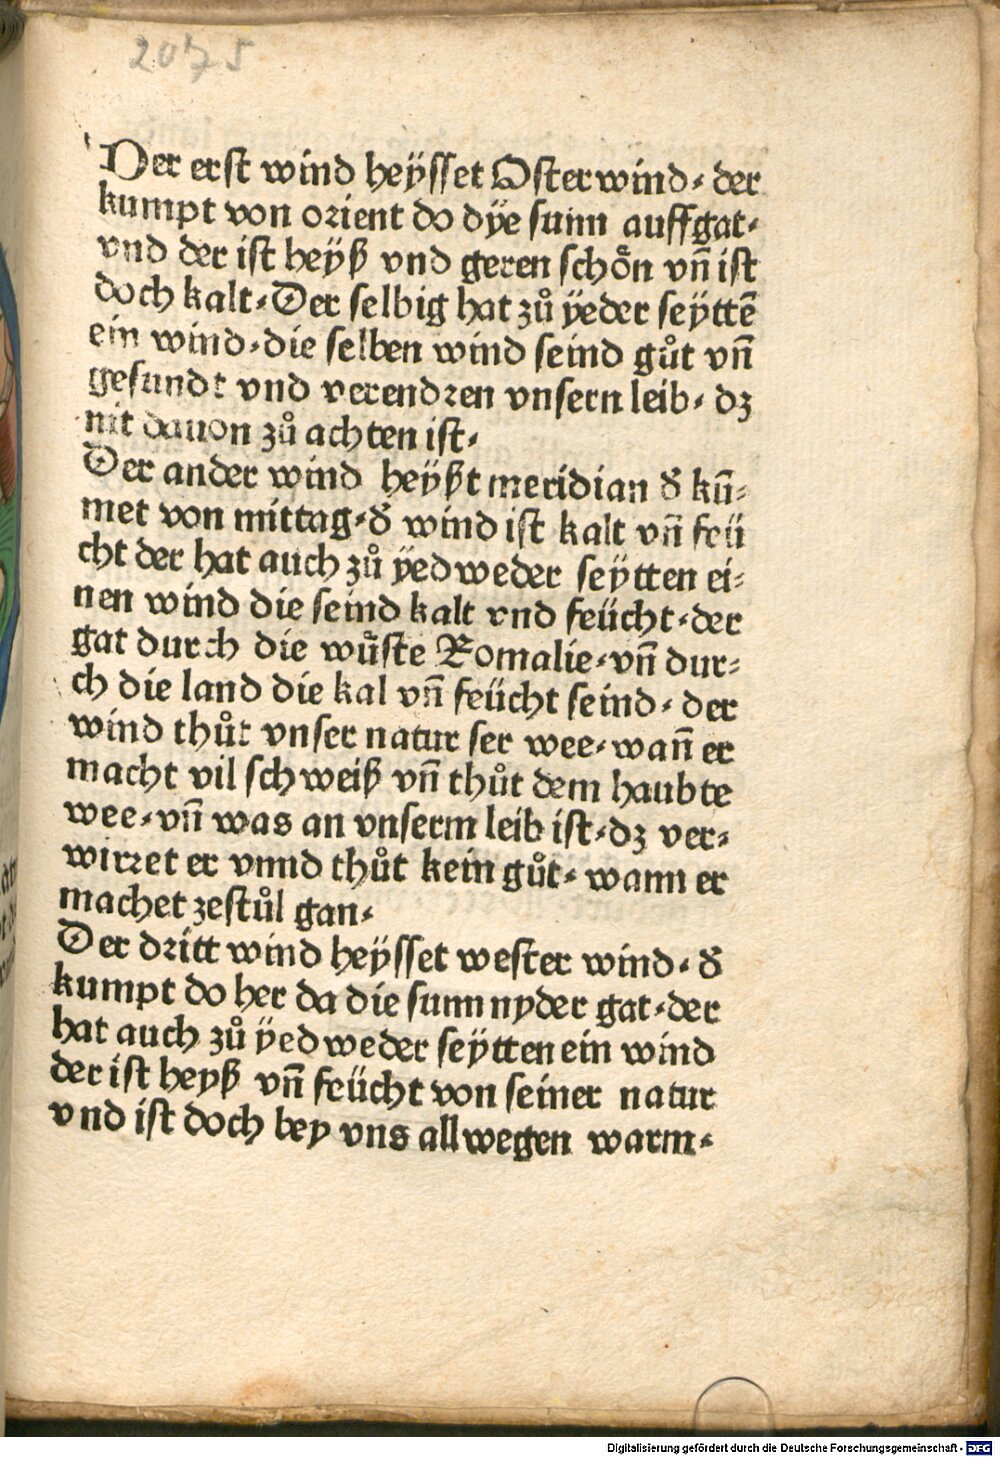 2075
Der erst wind heÿsset Osterwind⸗ der
kumpt von orient do dÿe sunn auffgat⸗
vnd der ist heÿß vnd geren schoͤn vn̄ ist
doch kalt⸗ Der selbig hat zuͦ ÿeder seÿttē
ein wind⸗ die selben wind seind guͦt vn̄
gesundt vnd verendren vnsern leib⸗ dz
nit dauon zuͦ achten ist⸗
Der ander wind heÿßt meridian d̕ kū⸗
met von mittag⸗ d̕ wind ist kalt vn̄ feü
cht der hat auch zuͦ ÿedweder seÿtten ei⸗
nen wind die seind kalt vnd feücht⸗ der
gat durch die wuͤste Romalie⸗ vn̄ dur⸗
ch die land die kal vn̄ feücht seind⸗ der
wind thuͦt vnser natur ser wee⸗ wan̄ er
macht vil schweiß vn̄ thuͦt dem haubte
wee⸗ vn̄ was an vnserm leib ist⸗ dz ver⸗
wirret er vnnd thuͦt kein guͦt⸗ wann er
machet zestuͦl gan⸗
Der dritt wind heÿsset wester wind⸗ d̕
kumpt do her da die sunn nyder gat⸗ der
hat auch zuͦ ÿedweder seÿtten ein wind
der ist heyß vn̄ feücht von seiner natur
vnd ist doch bey vns allwegen warm⸗
Digitalisierung gefördert durch die Deutsche Forschungsgemeinschaft - DFG